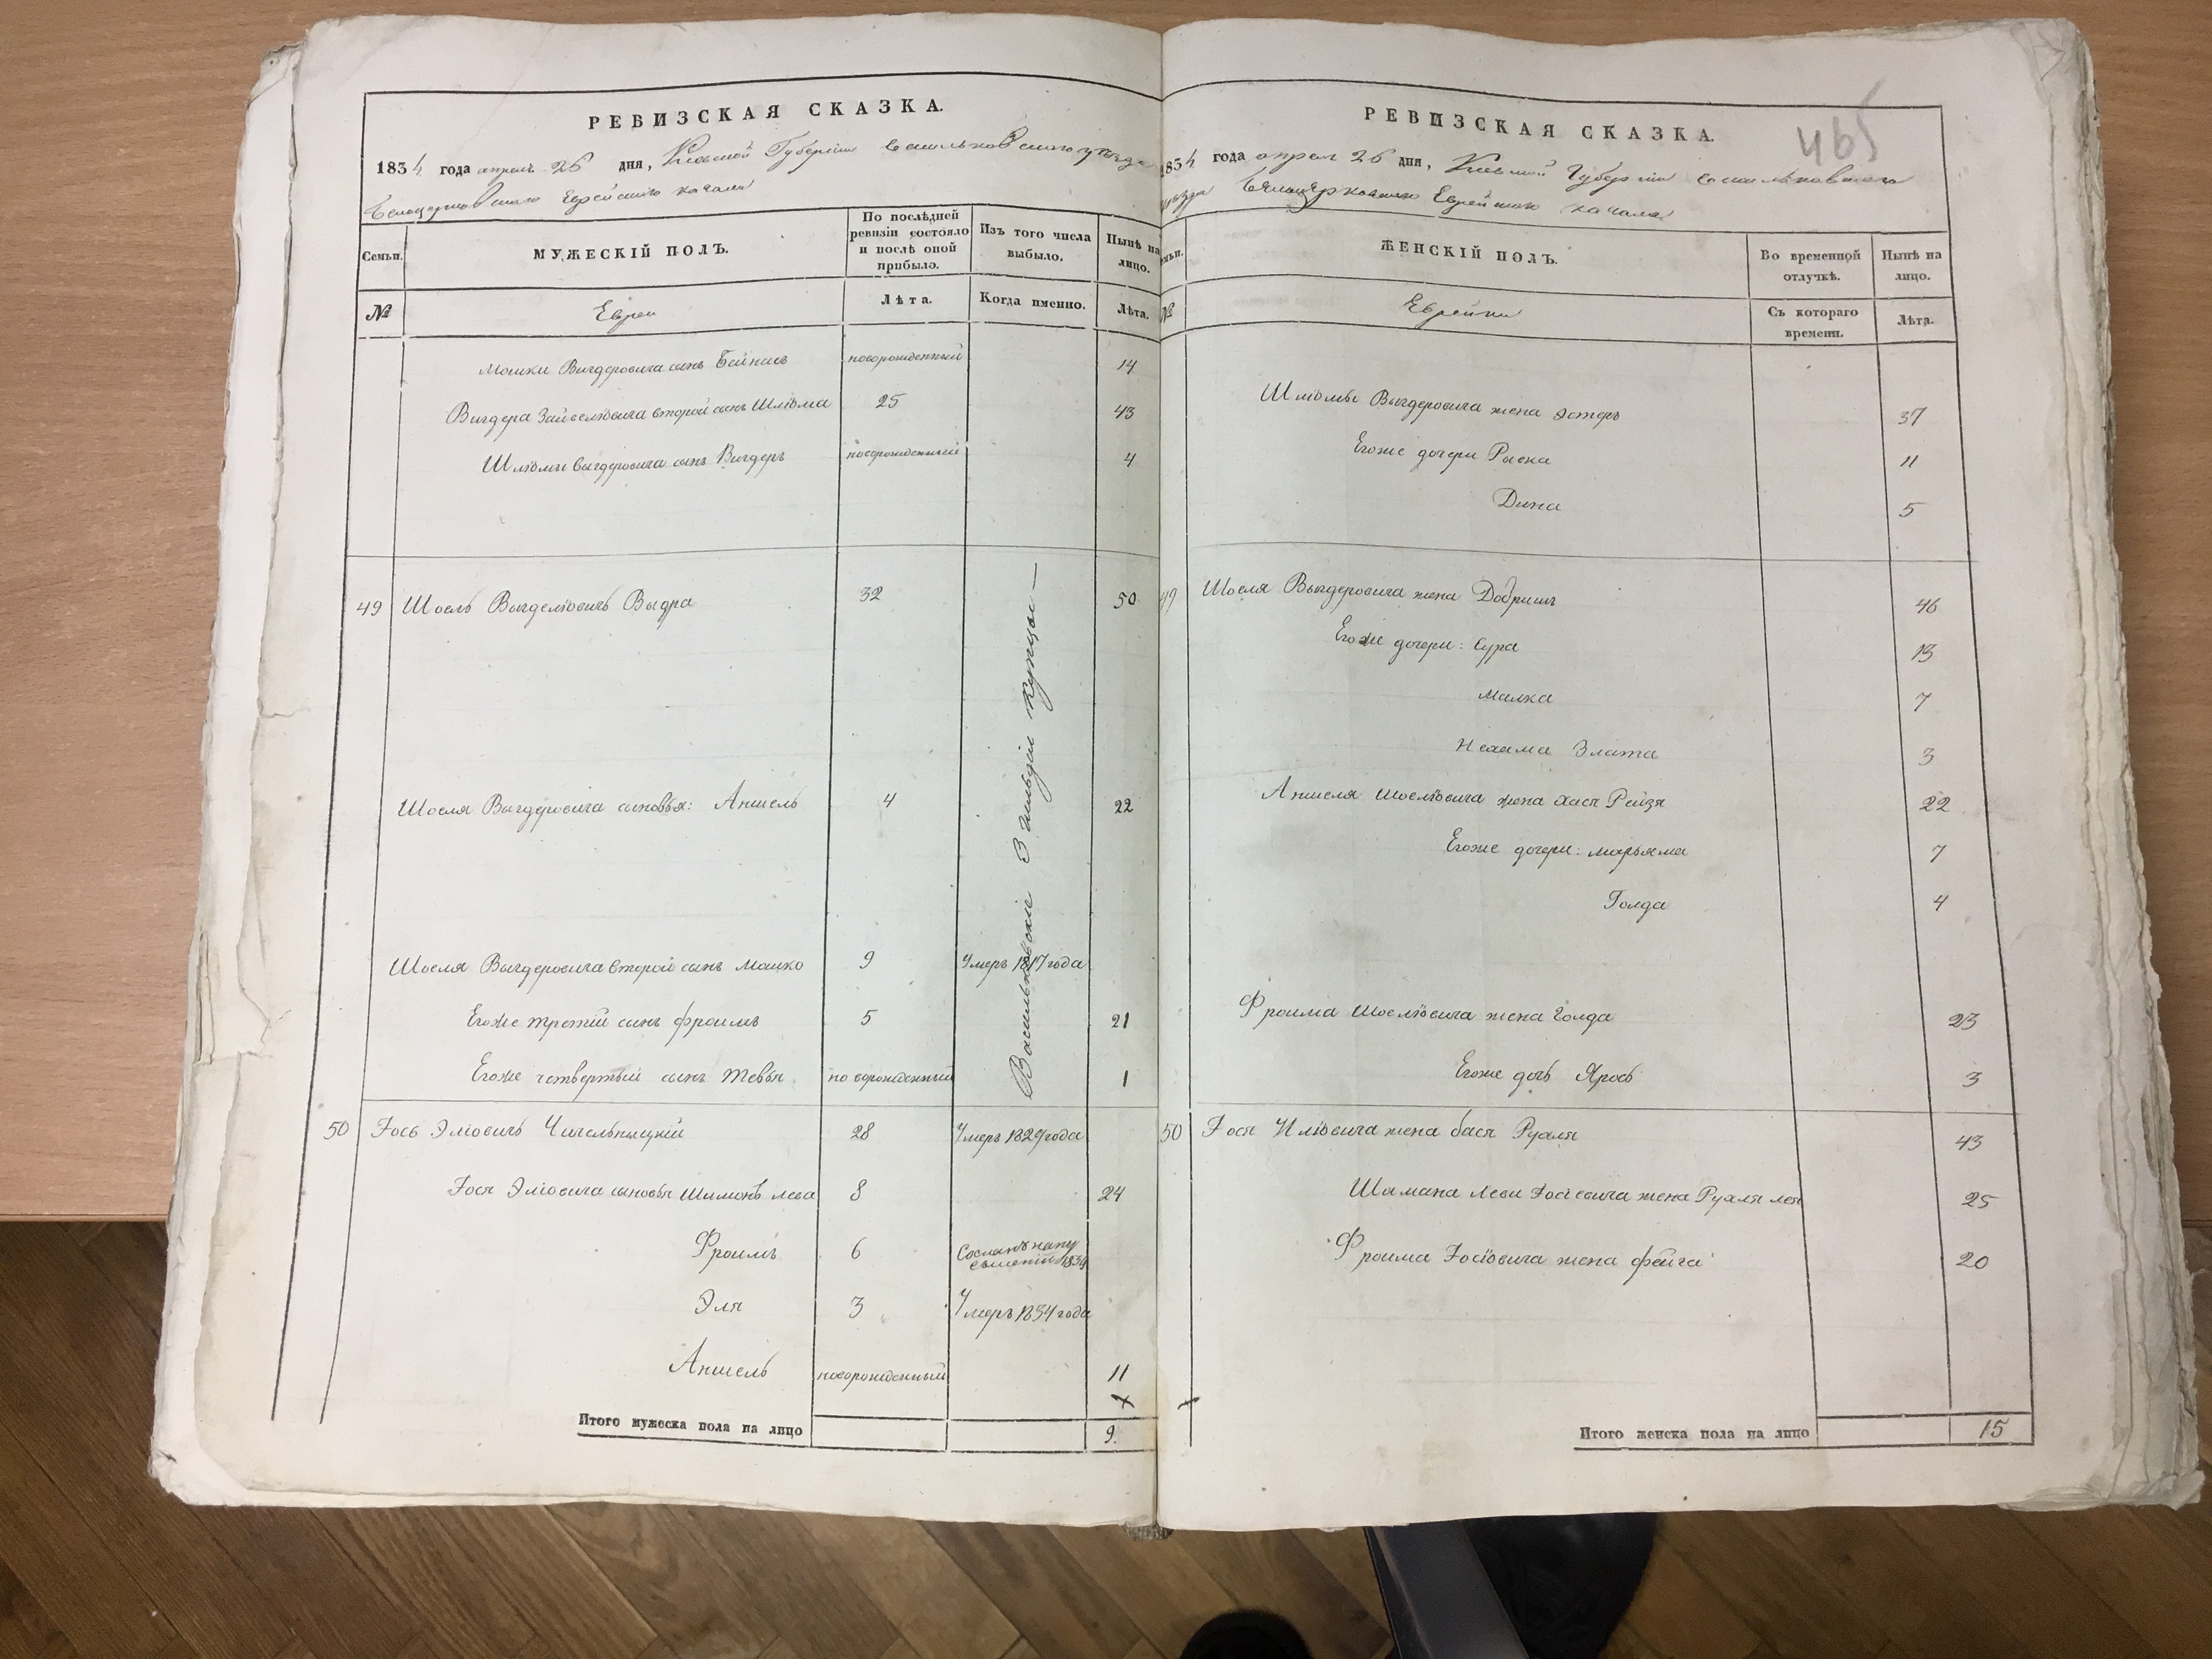 РЕВИЗСКАЯ СКАЗКА.
1834 года апреля 26 дня, Киевской Губернии Васильковского уезда
Белоцерковского Еврейского кагала
Семьи.
МУЖЕСКІЙ ПОЛЪ.
По послѣдней ревизіи состояло и послѣ оной прибыло.
Изъ того числа выбыло.
Нынѣ на лицо.
№
Евреи
Лѣта.
Когда именно.
Лѣта.
Мошки Выгдеровича сынъ Бейнисъ новорожденный 14
Выгдера Зайвеліовича второй сынъ Шліома 25 43
Шліомы Выгдеровича сынъ Выгдеръ новорожденный 4
49 Шоель Выгделіовичъ Выдра 32 50
Васильковскіе 3 гильдіи купцы —
Шоеля Выгдеровича сыновья: Аншель 4 22
Шоеля Выгдеровича второй сынъ Мошко 9 Умеръ 1817 года
Егоже третій сынъ Фроимъ 5 21
Егоже четвертый сынъ Тевья новорожденный 1
50 Іось Эліовичъ Чигельницкій 28 Умеръ 1829 года
Іося Эліовича сыновья Шимонъ Лева 8 24
Фроимъ 6 Сосланъ на 1834
Эля 3 Умеръ 1834 года
Аншель новорожденный 11
Итого мужеска пола на лицо 9.
465
РЕВИЗСКАЯ СКАЗКА.
1834 года апреля 26 дня, Киевской Губернии Васильковского
уезда Белоцерковского Еврейского кагала
Семьи.
ЖЕНСКІЙ ПОЛЪ.
Во временной отлучкѣ.
Нынѣ на лицо.
№
Еврейки
Съ котораго времени.
Лѣта.
Шліомы Выгдеровича жена Эстеръ 37
Егоже дочери Рыска 11
Дина 5
49 Шоеля Выгдеровича жена Добришъ 46
Егоже дочери: Сура 13
Малка 7
Нехама Злата 3
Аншеля Шоеліовича жена Хася Рейзя 22
Егоже дочери: Марьяма 7
Голда 4
Фроима Шоеліовича жена Голда 23
Егоже дочь Ярось 3
50 Іося Иліовича жена Бася Рухля 43
Шимана Леви Іосіовича жена Рухля Лея 25
Фроима Іосіовича жена Фейга 20
Итого женска пола на лицо 15